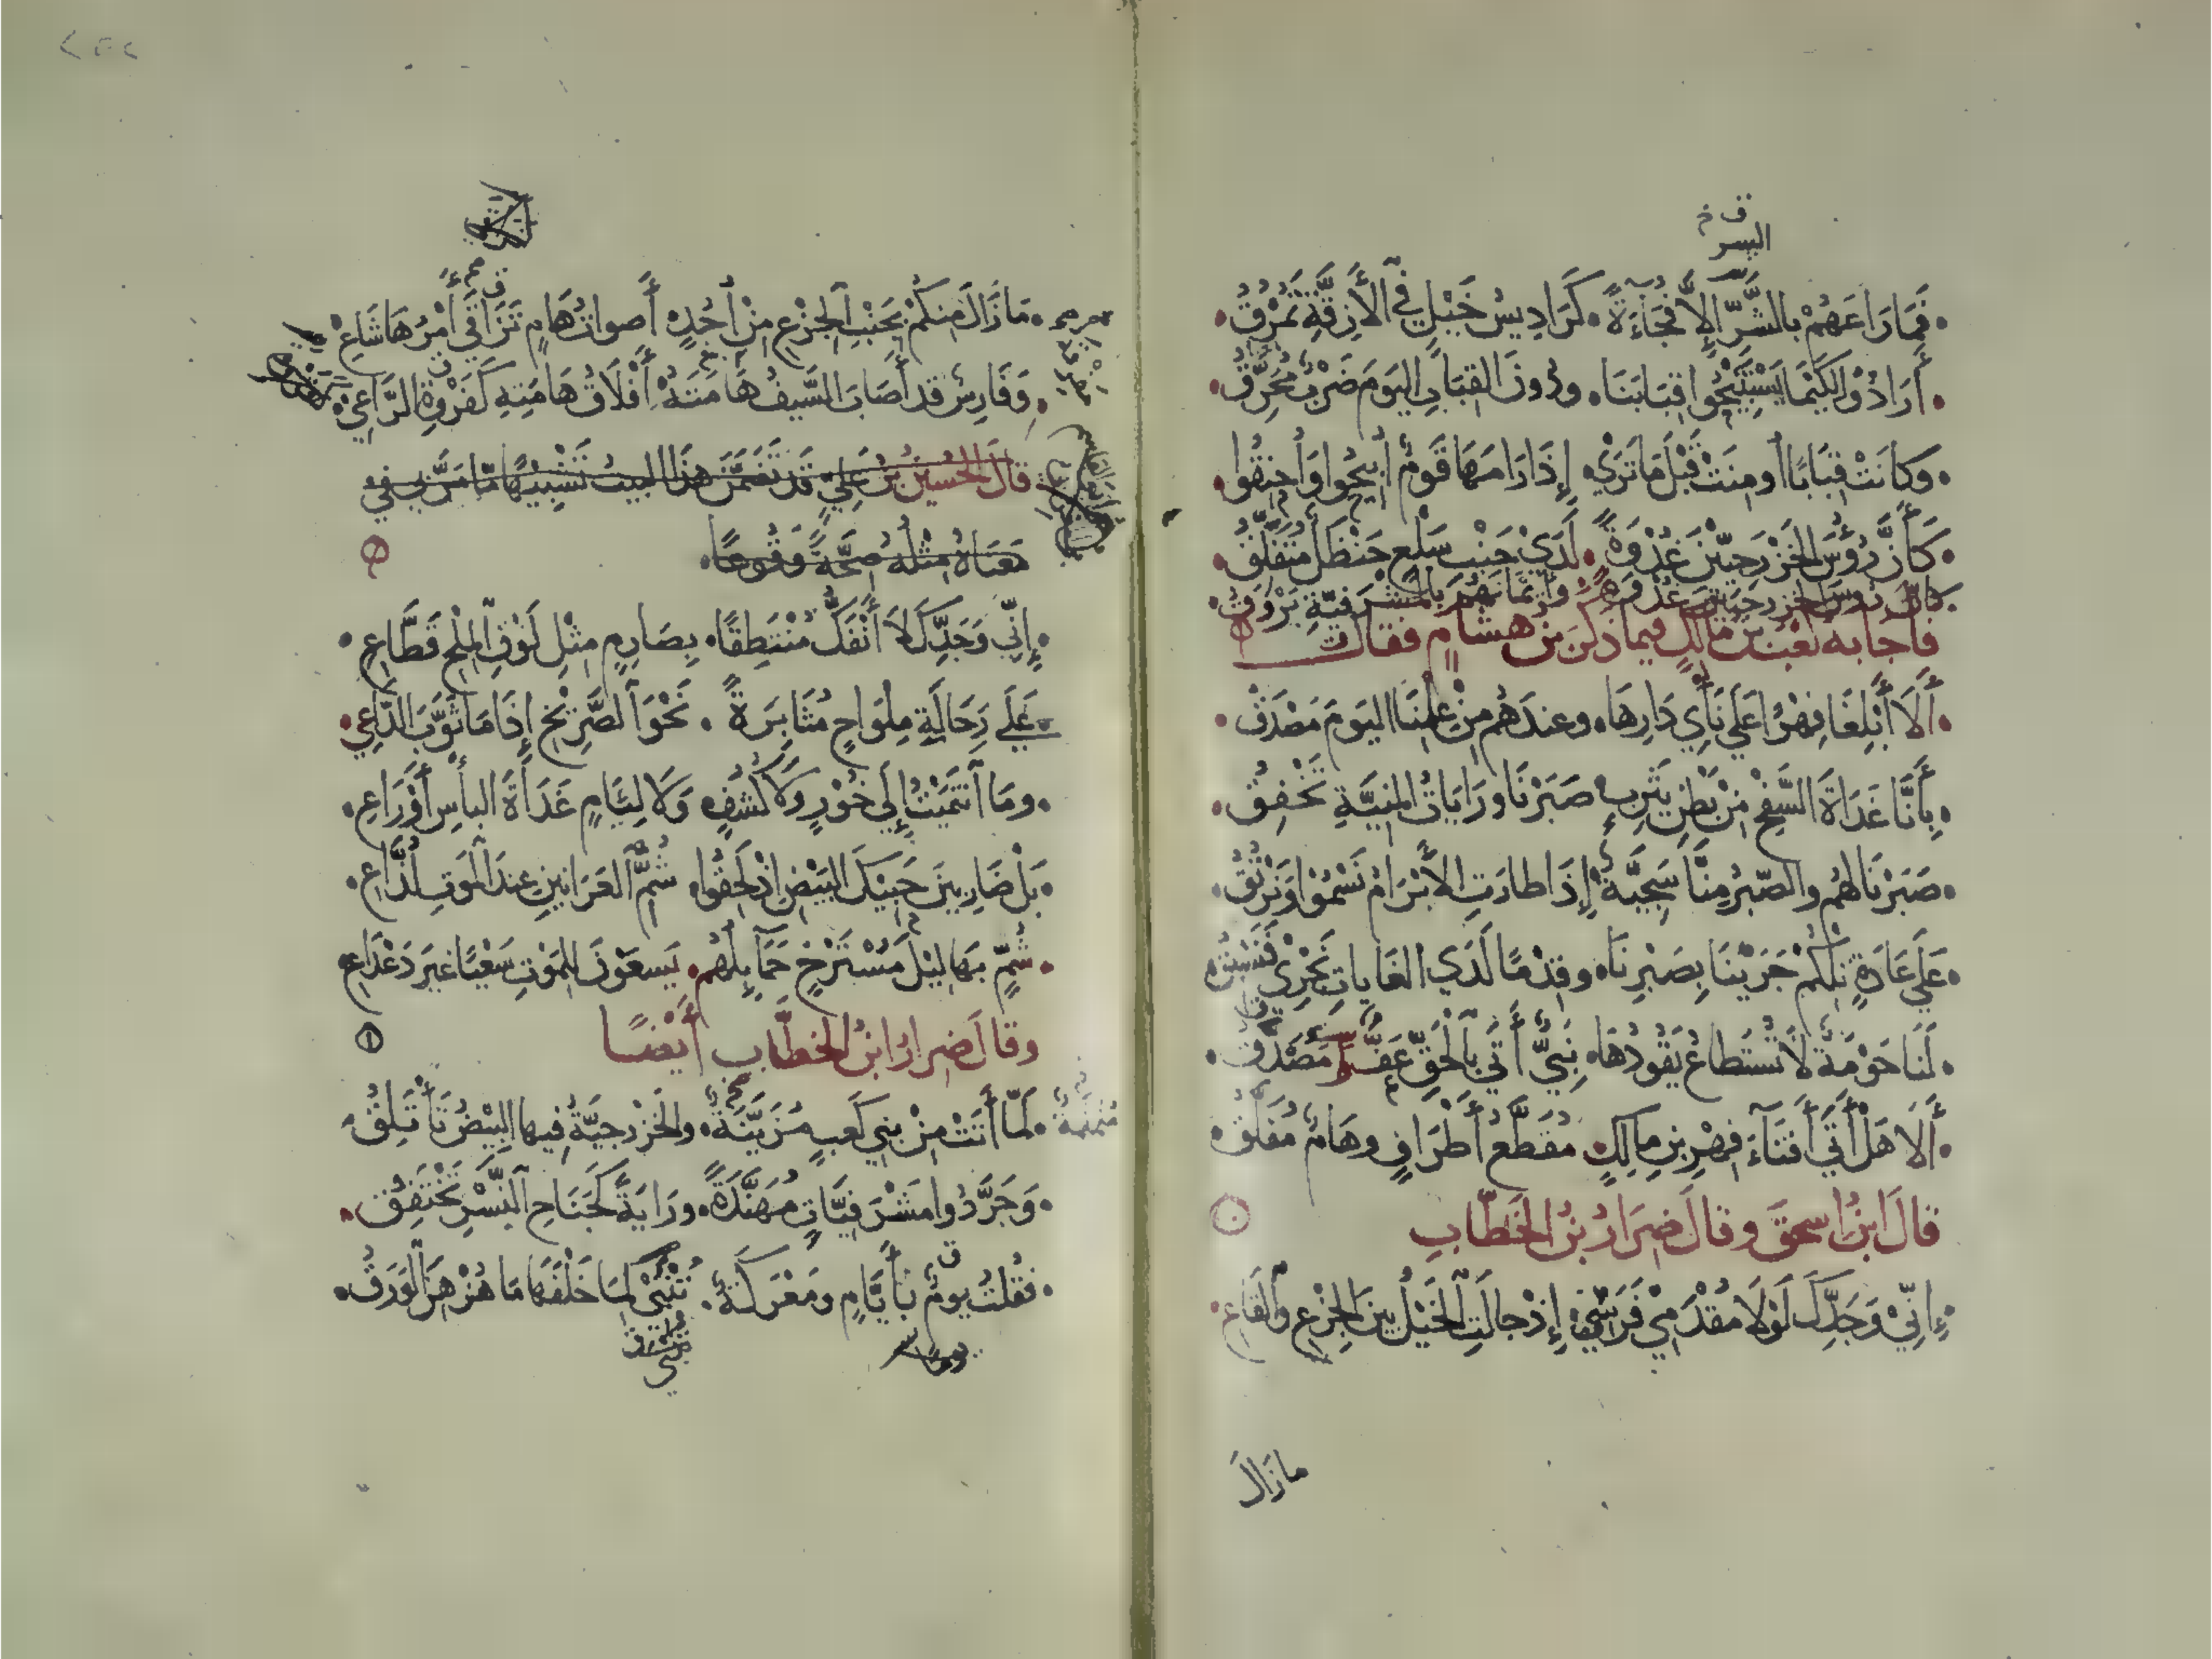 ف خ
السر
فَمَا رَاعَهُمْ بالشَّرِّ إِلَّا فُجَاءَةً • كَرَادِيسُ خَيْلٍ في الأَزِقَّةِ تَمْرُقُ •
• أَرَادُوْا لكَيْمَا يَسْتَبِيْحُوا قِبَابَنَا • ودُونَ القِبَابِ اليَومَ ضَرْبٌ مُحَرِّقُ •
• وَكانَتْ قِبَابًا أُومِنَتْ قَبْلَ مَا تَرَيْ • إِذَا رَامَهَا قَومٌ أُبِيْحُوا وَأُحنِقُوا •
• كَأَنَّ رُؤُسَ الخَزْرَجِيّيْنَ غُدْوَةً • لَدَيْ جَنْبِ سَلْعٍ حَنْظَلٌ مُتَفَلِّقُ •
كأنّ رؤسَ الخزرجيّين غُدْوَةً • وأيمَانَهُمْ بالمَشْرَفيّةِ بَرْوَقُ •
فأجابه كعب بن مالكٍ فيما ذكر بن هشامٍ فقال
• أَلَا أَبْلِغَا فِهْرًا عَلَي نَأْيِ دَارِهَا • وعندَهُم مِنْ عِلْمِنَا اليَومَ مَصْدَقُ •
• بِأَنَّا غَدَاةَ السَّفْحِ مِنْ بَطْنِ يَثْرِبٍ صَبَرْنَا ورَايَاتُ المنِيَّةِ تَخْفِقُ •
• صَبَرْنَا لهُم والصّبْرُ مِنَّا سَجِيَّةٌ إِذَا طارَتِ الأَبْرَامُ نَسْمُوْا وَنَرْتُقُ •
• عَلَي عَادَةٍ تِلْكُمْ جَرَيْنَا بِصَبْرِنَا • وقِدْمًا لَدَي الغَايَاتِ نَجْرِيْ فَنَسْبِقُ
• لَنَا حَوْمَةٌ لَا تُسْتَطاعُ يَقُودُهَا • نَبِيٌّ أَتَي بالحَقِّ عَفٌّ مُصَدَّقُ •
• أَلَا هَلْ أَتَي أَفْنَآءَ فِهْرِ بنِ مالِكٍ مُقَطَّعُ أَطْرَافٍ وهَامٌ مُفَلَّقُ •
قالَ ابنُ اسحقَ وقالَ ضِرَارُ بنُ الخَطَّابِ
• إِنِّيْ وَجَدِّكَ لَوْلَا مُقْدَمِيْ فَرَسِيْ إِذْ جالَتِ الخَيْلُ بينَ الجِزْعِ والقَاعِ •
ما زالَ
• مَا زَالَ مِنكُمْ بجَنْبِ الجِزْعِ مِنْ أُحُدٍ أَصواتُ هَامٍ تَزَاقَي أَمْرُهَا شَاعِ •
• وَفَارِسٌ قد أَصَابَ السَّيفُ هَامَتَهُ أَفْلَاقُ هَامَتِهِ كَفَرْوةِ الرَّاعِيْ •
قالَ الحُسَيْنُ بنُ عَلِيٍّ قَد تَضَمَّنَ هَذَا البيتُ تَشْبِيْهًا مّا مَرَّ بي في
مَعْنَاهُ مِثْلُهُ صِحَّةً وَقُوعًا •
• إِنِّي وَجَدِّكَ لَا أَنْفَكُّ مُنْتَطِقًا • بِصَارِمٍ مِثْلِ لَوْنِ المِلْحِ قَطَّاعِ •
• عَلَي رِحَالَةِ مِلْوَاحٍ مُثَابِرَةً • نَحْوَ الصَّرِيْخِ إِذَا مَا ثَوَّبَ الدَّاعِي •
• ومَا انْتَمَيْتُ إِلَي خُوْرٍ وَلَا كُشُفٍ وَلَا لِئَامٍ غَدَاةَ البأْسِ أَوْرَاعِ •
• بَلْ ضَارِبِينَ حَبِيْكَ البَيْضِ إِذْ لَحِقُوا • شُمِّ العَرَانِينِ عِندَ المَوتِ لُذَّاعِ •
• شُمٍّ بَهَالِيْلَ مُسْتَرْخٍ حَمَآيِلُهُم • يَسعَونَ للمَوتِ سَعْيًا غيرَ دَعْدَاعِ
وقالَ ضِرارُ ابنُ الخطَّابِ أَيْضًا
مُنَمْنَمَةٌ
• لَمَّا أَتَتْ مِنْ بَنِي كَعبٍ مُزَيَّنَةٌ • والخَزْرجيَّةُ فِيها البِيْضُ تَأْتَلِقُ •
• وَجَرَّدُوا مَشْرَفِيَّاتٍ مُهَنَّدَةً • ورَايَةً كَجَنَاحِ النَّسْرِ تَخْتَفِقُ •
• فقُلتُ يومٌ بأَيَّامٍ ومَعْرَكَةٌ • تُنْبِيْ لِمَا خَلْفَهَا مَا هُزْهِزَ الوَرَقُ •